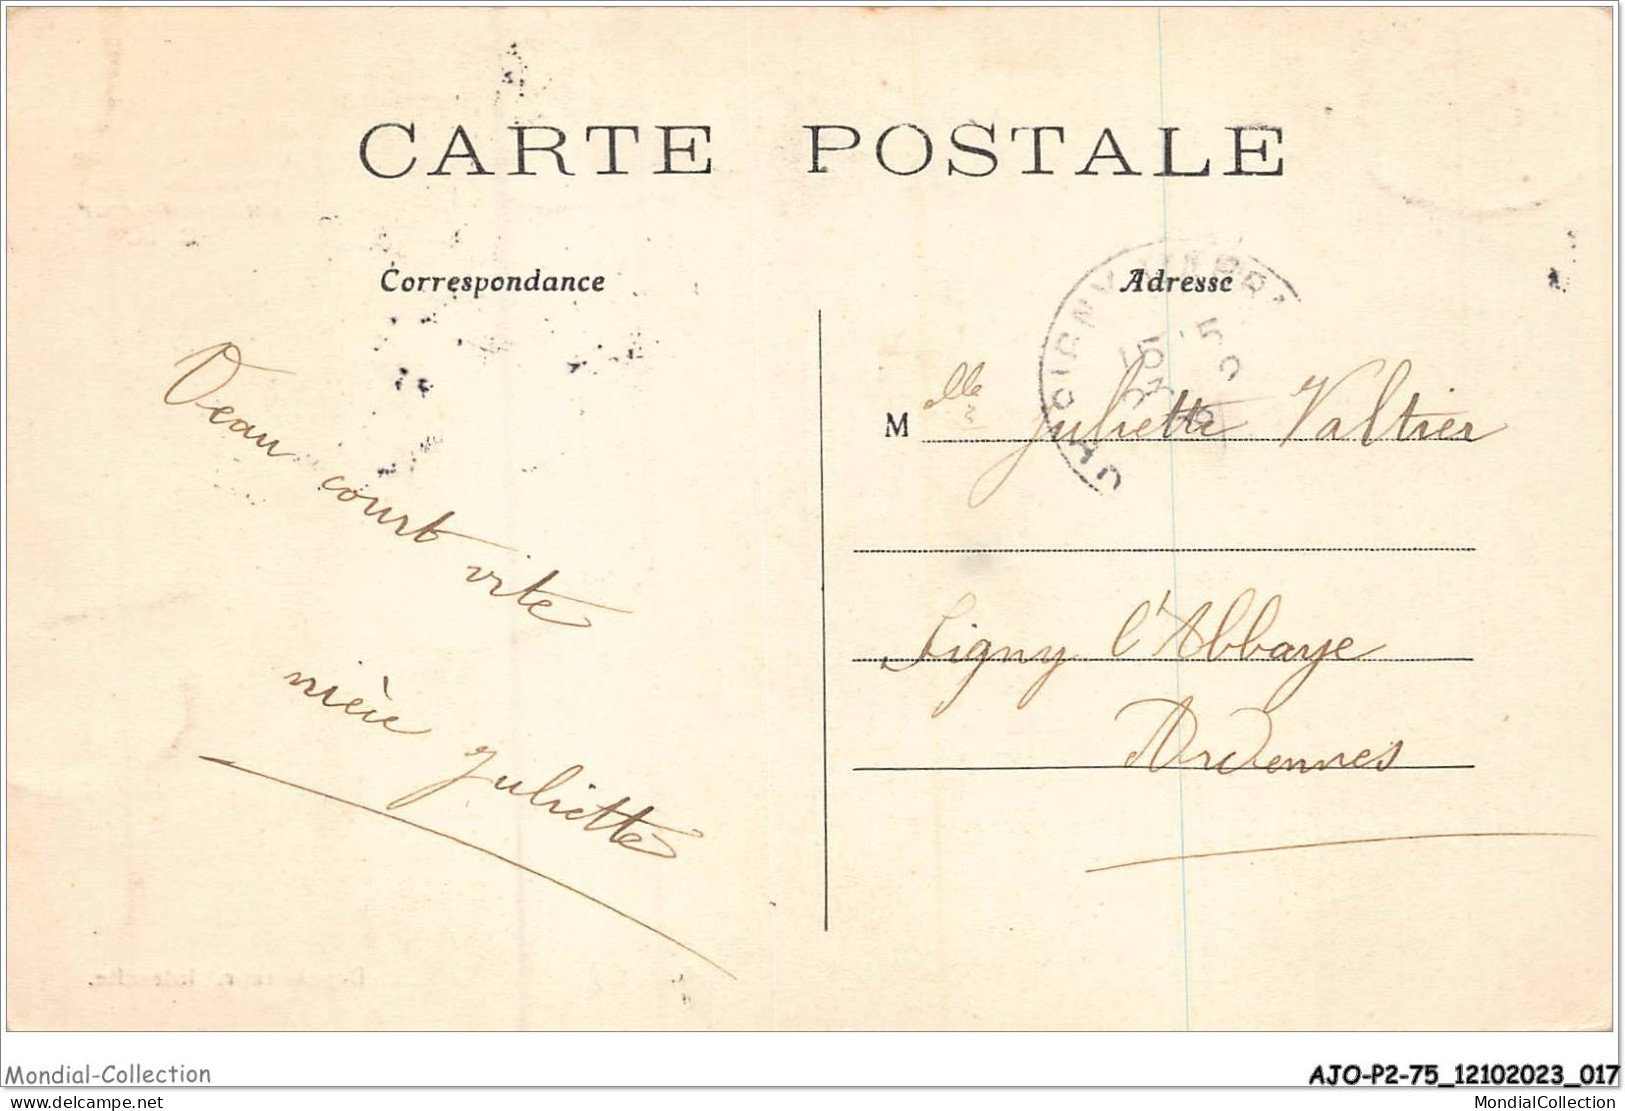 CARTE POSTALE
Correspondance
Adresse
Veau court vite
nièce Juliette
M elle Juliette Valtier
Signy l'Abbaye
Ardennes
Mondial-Collection
AJO-P2-75_12102023_017
delcampe.net
MondialCollection